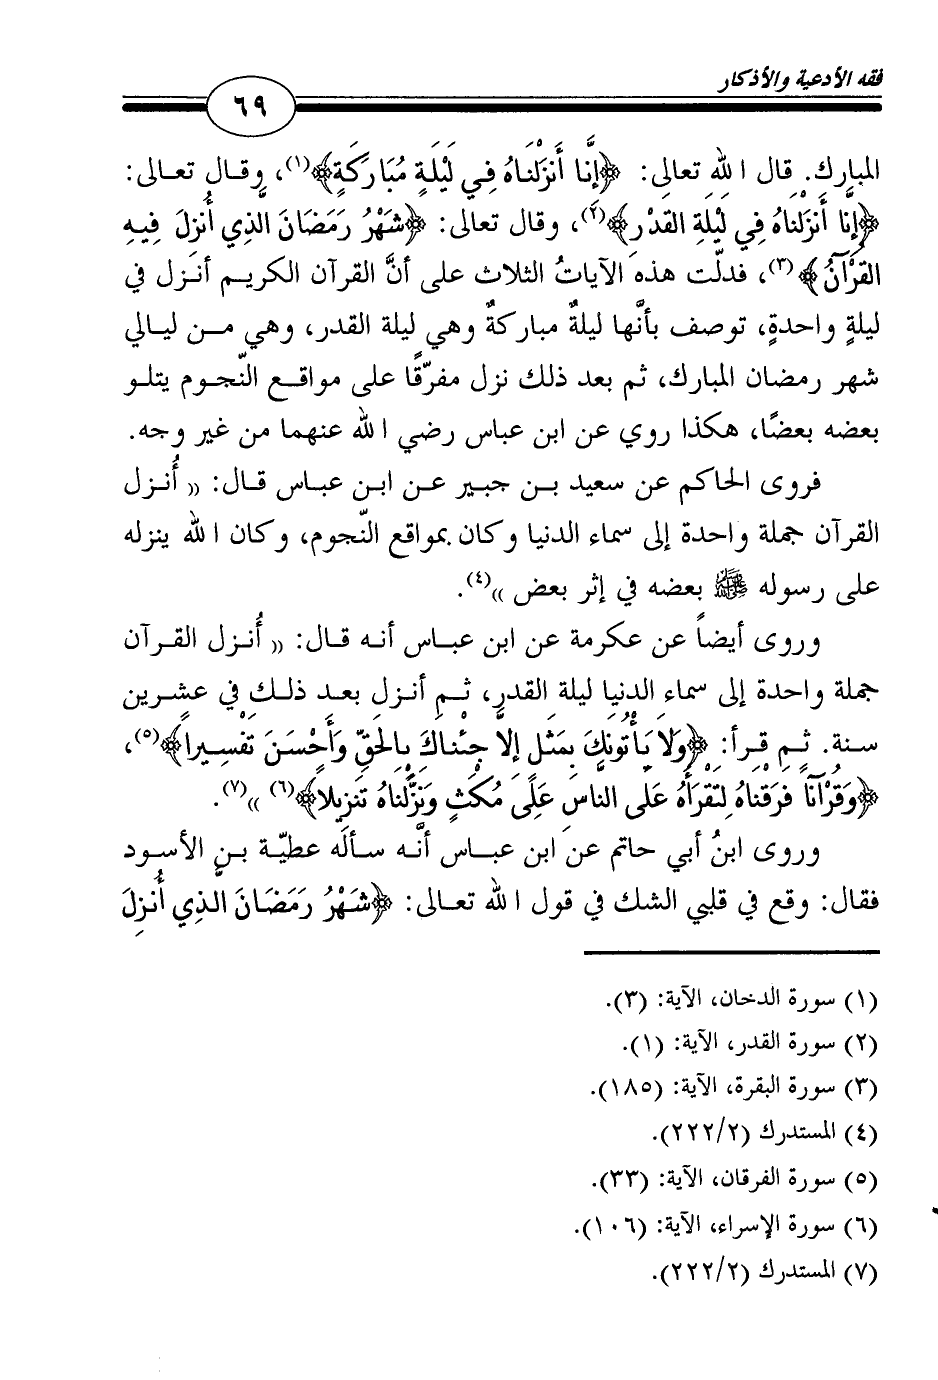 فقه الأدعية والأذكار
٦٩
المبارك. قال الله تعالى: ﴿إِنَّا أَنْزَلْنَاهُ فِي لَيْلَةٍ مُبَارَكَةٍ﴾(١)، وقال تعالى:
﴿إِنَّا أَنْزَلْنَاهُ فِي لَيْلَةِ القَدْرِ﴾(٢)، وقال تعالى: ﴿شَهْرُ رَمَضَانَ الَّذِي أُنْزِلَ فِيهِ
القُرْآنُ﴾(٣)، فدلّت هذه الآياتُ الثلاث على أنَّ القرآن الكريم أنزل في
ليلةٍ واحدةٍ، توصف بأنَّها ليلةٌ مباركةٌ وهي ليلة القدر، وهي من ليالي
شهر رمضان المبارك، ثم بعد ذلك نزل مفرّقًا على مواقع النّجوم يتلو
بعضه بعضًا، هكذا روي عن ابن عباس رضي الله عنهما من غير وجه.
فروى الحاكم عن سعيد بن جبير عن ابن عباس قال: «أُنزل
القرآن جملة واحدة إلى سماء الدنيا وكان بمواقع النّجوم، وكان الله ينزله
على رسوله ﷺ بعضه في إثر بعض»(٤).
وروى أيضاً عن عكرمة عن ابن عباس أنه قال: «أُنزل القرآن
جملة واحدة إلى سماء الدنيا ليلة القدر، ثم أنزل بعد ذلك في عشرين
سنة. ثم قرأ: ﴿وَلَا يَأْتُونَكَ بِمَثَلٍ إِلاَّ جِئْنَاكَ بِالحَقِّ وَأَحْسَنَ تَفْسِيراً﴾(٥)،
﴿وَقُرْآنًا فَرَقْنَاهُ لِتَقْرَأَهُ عَلَى النَّاسِ عَلَى مُكْثٍ وَنَزَّلْنَاهُ تَنْزِيلاً﴾(٦)»(٧).
وروى ابنُ أبي حاتم عن ابن عباس أنَّه سأله عطيّة بن الأسود
فقال: وقع في قلبي الشك في قول الله تعالى: ﴿شَهْرُ رَمَضَانَ الَّذِي أُنْزِلَ
(١) سورة الدخان، الآية: (٣).
(٢) سورة القدر، الآية: (١).
(٣) سورة البقرة، الآية: (١٨٥).
(٤) المستدرك (٢٢٢/٢).
(٥) سورة الفرقان، الآية: (٣٣).
(٦) سورة الإسراء، الآية: (١٠٦).
(٧) المستدرك (٢٢٢/٢).